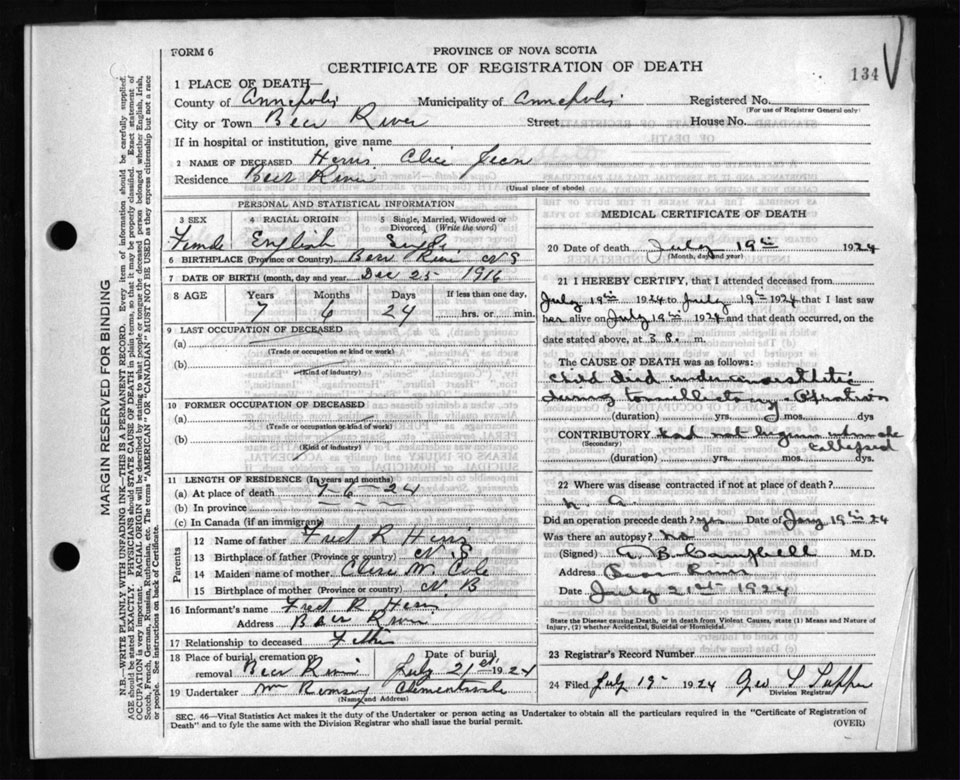 FORM 6
PROVINCE OF NOVA SCOTIA
CERTIFICATE OF REGISTRATION OF DEATH
134
1 PLACE OF DEATH—
County of Annapolis Municipality of Annapolis Registered No.
(For use of Registrar General only)
City or Town Bear River Street House No.
If in hospital or institution, give name
2 NAME OF DECEASED Jean
Residence Bear River
(Usual place of abode)
PERSONAL AND STATISTICAL INFORMATION
3 SEX 4 RACIAL ORIGIN 5 Single, Married, Widowed or Divorced (Write the word)
Female English Single
6 BIRTHPLACE (Province or Country). Bear River NS
7 DATE OF BIRTH (month, day and year). Dec 25 1916
8 AGE Years Months Days If less than one day,
7 6 24 hrs. or min.
9 LAST OCCUPATION OF DECEASED
(a)
(Trade or occupation or kind of work)
(b)
(Kind of industry)
10 FORMER OCCUPATION OF DECEASED
(a)
(Trade or occupation or kind of work)
(b)
(Kind of industry)
11 LENGTH OF RESIDENCE (In years and months)
(a) At place of death 7-6-24
(b) In province
(c) In Canada (if an immigrant)
Parents
12 Name of father Fred R
13 Birthplace of father (Province or country) N.S
14 Maiden name of mother. M. Cole
15 Birthplace of mother (Province or country) N.B
16 Informant's name Fred R
Address Bear River
17 Relationship to deceased Father
18 Place of burial, cremation or removal Bear River Date of burial July 21st 1924
19 Undertaker Wm Clementsvale
(Name and Address)
MEDICAL CERTIFICATE OF DEATH
20 Date of death July 19th 1924
(Month, day and year)
21 I HEREBY CERTIFY, that I attended deceased from
July 19th 1924 to July 19th 1924 that I last saw
her alive on July 19th 1924 and that death occurred, on the
date stated above, at 3 P. m.
The CAUSE OF DEATH was as follows:
Child died under anaesthetic
during tonsillectomy operation
(duration) yrs. mos. dys
CONTRIBUTORY had not begun when she
(Secondary) collapsed
(duration) yrs. mos. dys.
22 Where was disease contracted if not at place of death?
Did an operation precede death? yes Date of 19th 24
Was there an autopsy? no
(Signed) B. Campbell M.D.
Address Bear River
Date July 21st 1924
State the Disease causing Death, or in death from Violent Causes, state (1) Means and Nature of
Injury, (2) whether Accidental, Suicidal or Homicidal.
23 Registrar's Record Number
24 Filed July 19 1924 Geo S Tupper
Division Registrar
SEC. 46—Vital Statistics Act makes it the duty of the Undertaker or person acting as Undertaker to obtain all the particulars required in the "Certificate of Registration of
Death" and to fyle the same with the Division Registrar who shall issue the burial permit.
(OVER)
MARGIN RESERVED FOR BINDING
N.B.—WRITE PLAINLY WITH UNFADING INK—THIS IS A PERMANENT RECORD. Every item of information should be carefully supplied.
AGE should be stated EXACTLY. PHYSICIANS should STATE CAUSE OF DEATH in plain terms, so that it may be properly classified. Exact statement of
OCCUPATION is very important. RACIAL ORIGIN will be described by stating to what people or tongue the deceased person belonged whether English, Irish,
Scotch, French, German, Russian, Ruthenian, etc. The terms "AMERICAN" OR "CANADIAN" MUST NOT BE USED as they express citizenship but not a race
or people. See instructions on back of Certificate.